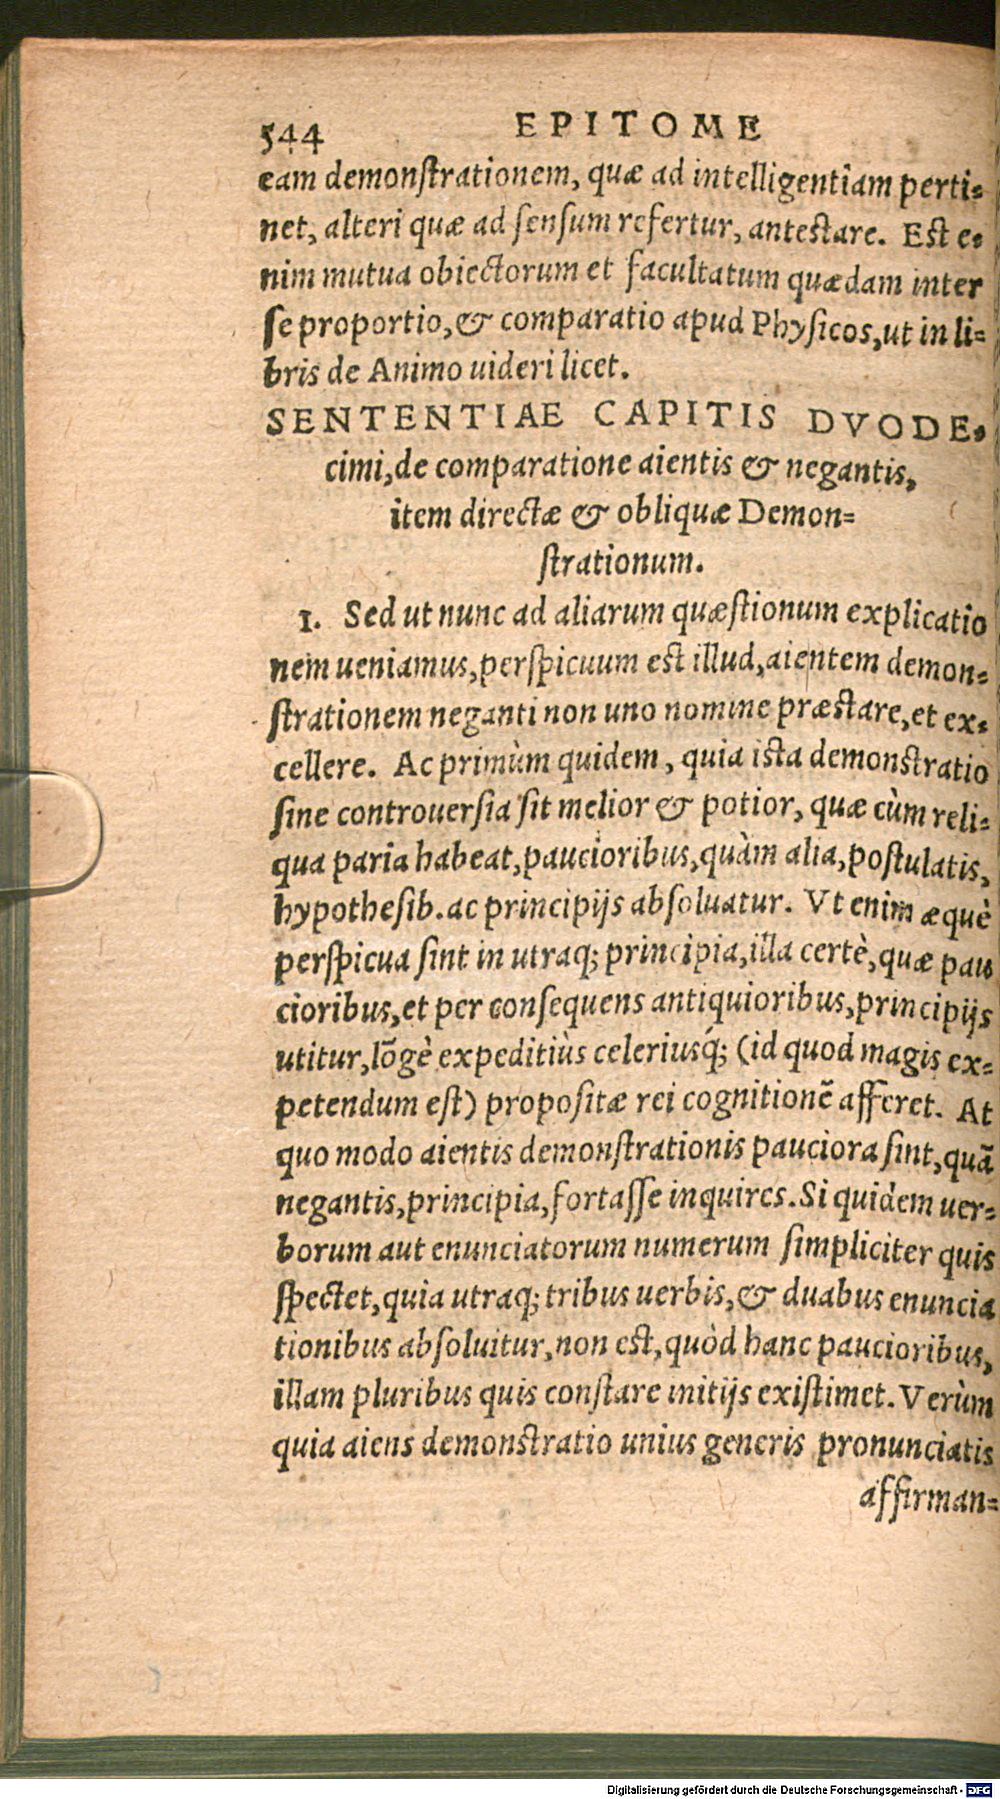 544 EPITOME
eam demonſtrationem, quæ ad intelligentiam perti=
net, alteri quæ ad ſenſum refertur, anteſtare. Eſt e=
nim mutua obiectorum et facultatum quædam inter
ſe proportio, & comparatio apud Phyſicos, ut in li=
bris de Animo uideri licet.
SENTENTIAE CAPITIS DVODE=
cimi, de comparatione aientis & negantis,
item directæ & obliquæ Demon=
ſtrationum.
1. Sed ut nunc ad aliarum quæſtionum explicatio
nem ueniamus, perſpicuum eſt illud, aientem demon=
ſtrationem neganti non uno nomine præſtare, et ex=
cellere. Ac primùm quidem, quia iſta demonſtratio
ſine controuerſia ſit melior & potior, quæ cùm reli=
qua paria habeat, paucioribus, quàm alia, poſtulatis,
hypotheſib. ac principijs abſoluatur. Vt enim æquè
perſpicua ſint in utraq; principia, illa certè, quæ pau
cioribus, et per conſequens antiquioribus, principijs
utitur, lõgè expeditiùs celeriusq́; (id quod magis ex=
petendum eſt) propoſitæ rei cognitionẽ afferet. At
quo modo aientis demonſtrationis pauciora ſint, quã
negantis, principia, fortaſſe inquires. Si quidem uer=
borum aut enunciatorum numerum ſimpliciter quis
ſpectet, quia utraq; tribus uerbis, & duabus enuncia
tionibus abſoluitur, non eſt, quòd hanc paucioribus,
illam pluribus quis conſtare initijs exiſtimet. Verùm
quia aiens demonſtratio unius generis pronunciatis
affirman=
Digitalisierung gefördert durch die Deutsche Forschungsgemeinschaft - DFG